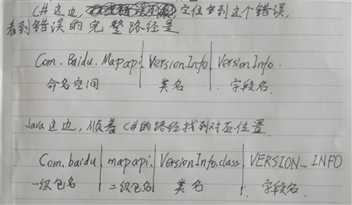 C# 这边, 定位到这个错误,
看到错误的完整路径是
Com.Baidu.Mapapi | VersionInfo | VersionInfo.
命名空间 类名 字段名
Java 这边, 顺着 C# 的路径找到对应位置
Com.baidu | mapapi. | VersionInfo.class | VERSION_INFO
一级包名 二级包名 类名 字段名.